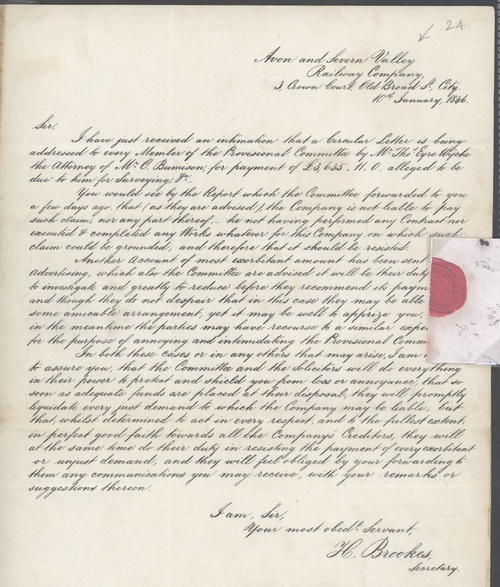 24
Avon and Severn Valley
Railway Company,
3, Crown Court, Old Broad St. City.
10th January, 1846.
Sir,
I have just received an intimation that a Circular Letter is being
addressed to every Member of the Provisional Committee by Mr. Thos. Eyre Wyche
the Attorney of Mr. C. Bumison, for payment of £3,635.. 11. 0, alleged to be
due to him for Surveying, &c.
You would see by the Report which the Committee forwarded to you
a few days ago, that (as they are advised), the Company is not liable to pay
such claim, nor any part thereof,— he not having performed any Contract nor
executed & completed any Works whatever for this Company on which such
claim could be grounded, and therefore that it should be resisted.
Another Account of most exorbitant amount has been sent
advertising, which also the Committee are advised it will be their duty
to investigate and greatly to reduce before they recommend its paym
and though they do not despair that in this case they may be able
some amicable arrangement, yet it may be well to apprize you,
in the meantime the parties may have recourse to a similar exped
for the purpose of annoying and intimidating the Provisional Comm
In both these cases or in any others that may arise, I am
to assure you, that the Committee and the Solicitors will do everything
in their power to protect and shield you from loss or annoyance, that so
soon as adequate funds are placed at their disposal, they will promptly
liquidate every just demand to which the Company may be liable, but
that, whilst determined to act in every respect, and to the fullest extent,
in perfect good faith towards all the Company's Creditors, they will
at the same time do their duty in resisting the payment of every exorbitant
or unjust demand, and they will feel obliged by your forwarding to
them any communications you may receive, with your remarks or
suggestions thereon.
I am, Sir,
Your most obedt. Servant,
H. Brookes,
Secretary.